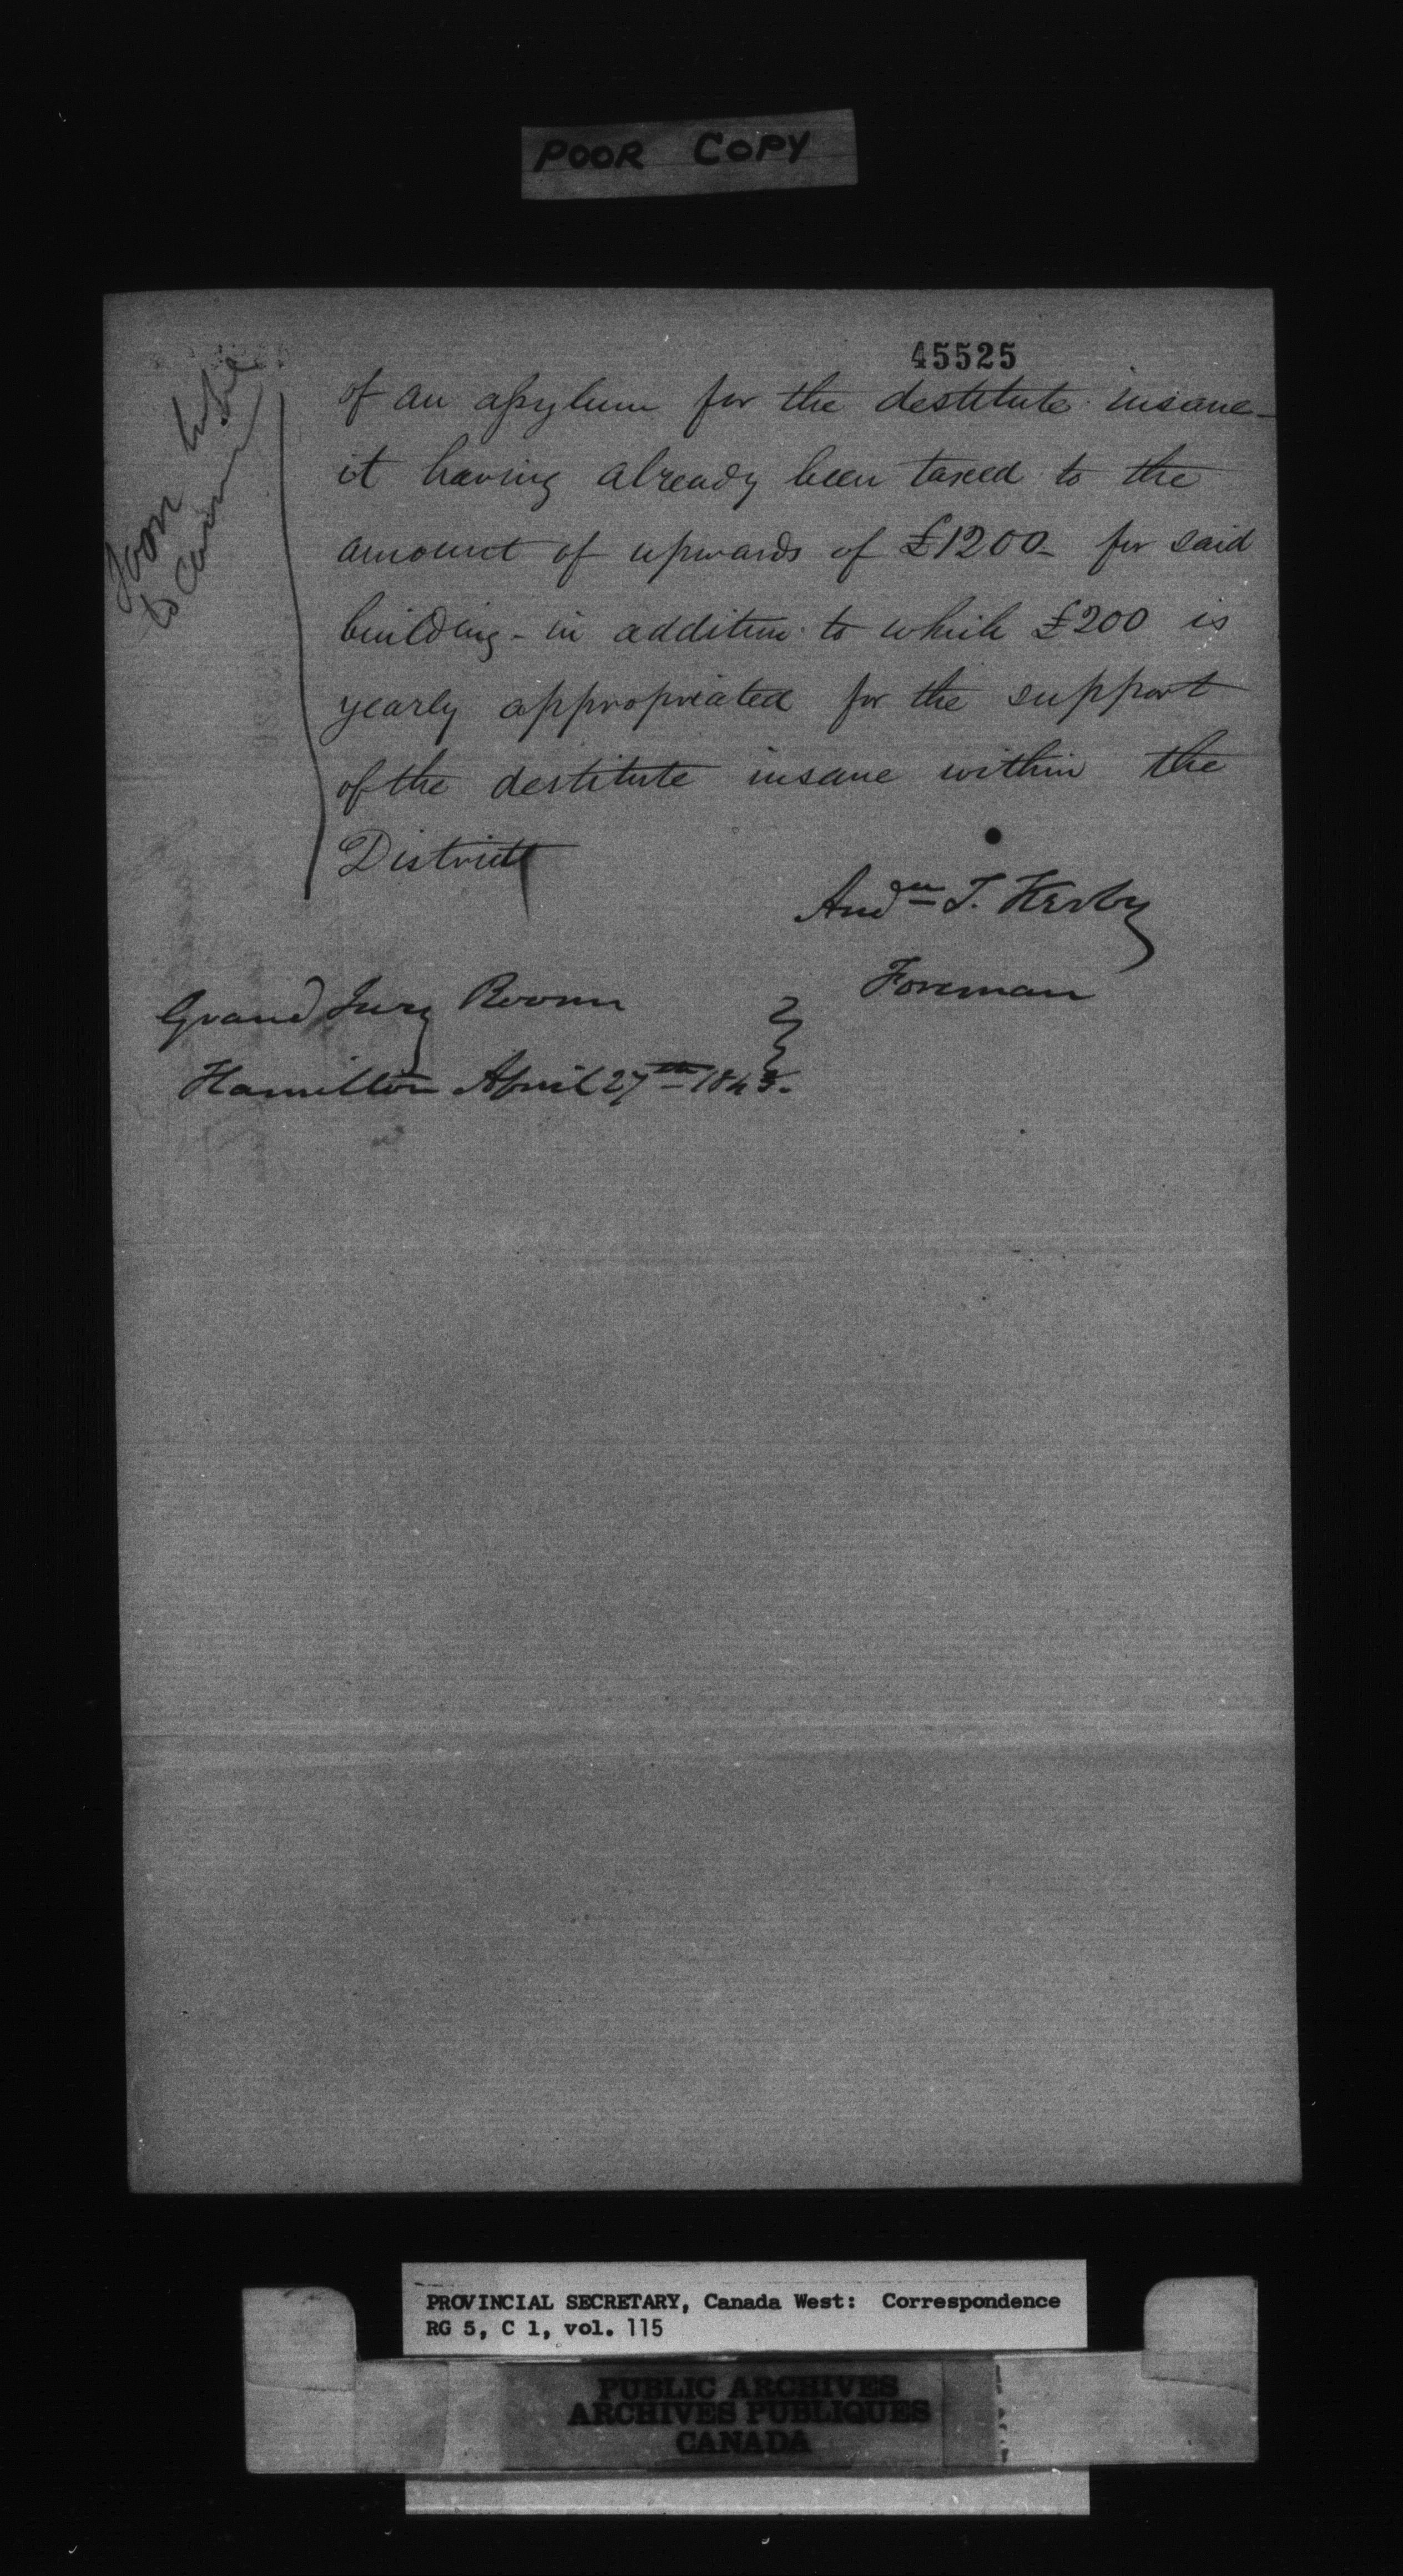 POOR COPY
45525
of an asylum for the destitute insane -
it having already been taxed to the
amount of upwards of £1200 - for said
building - in addition to which £200 is
yearly appropriated for the support
of the destitute insane within the
District
And^w T. Kerby
Foreman
Grand Jury Room
Hamilton April 27th 1843.
PROVINCIAL SECRETARY, Canada West: Correspondence
RG 5, C 1, vol. 115
PUBLIC ARCHIVES
ARCHIVES PUBLIQUES
CANADA